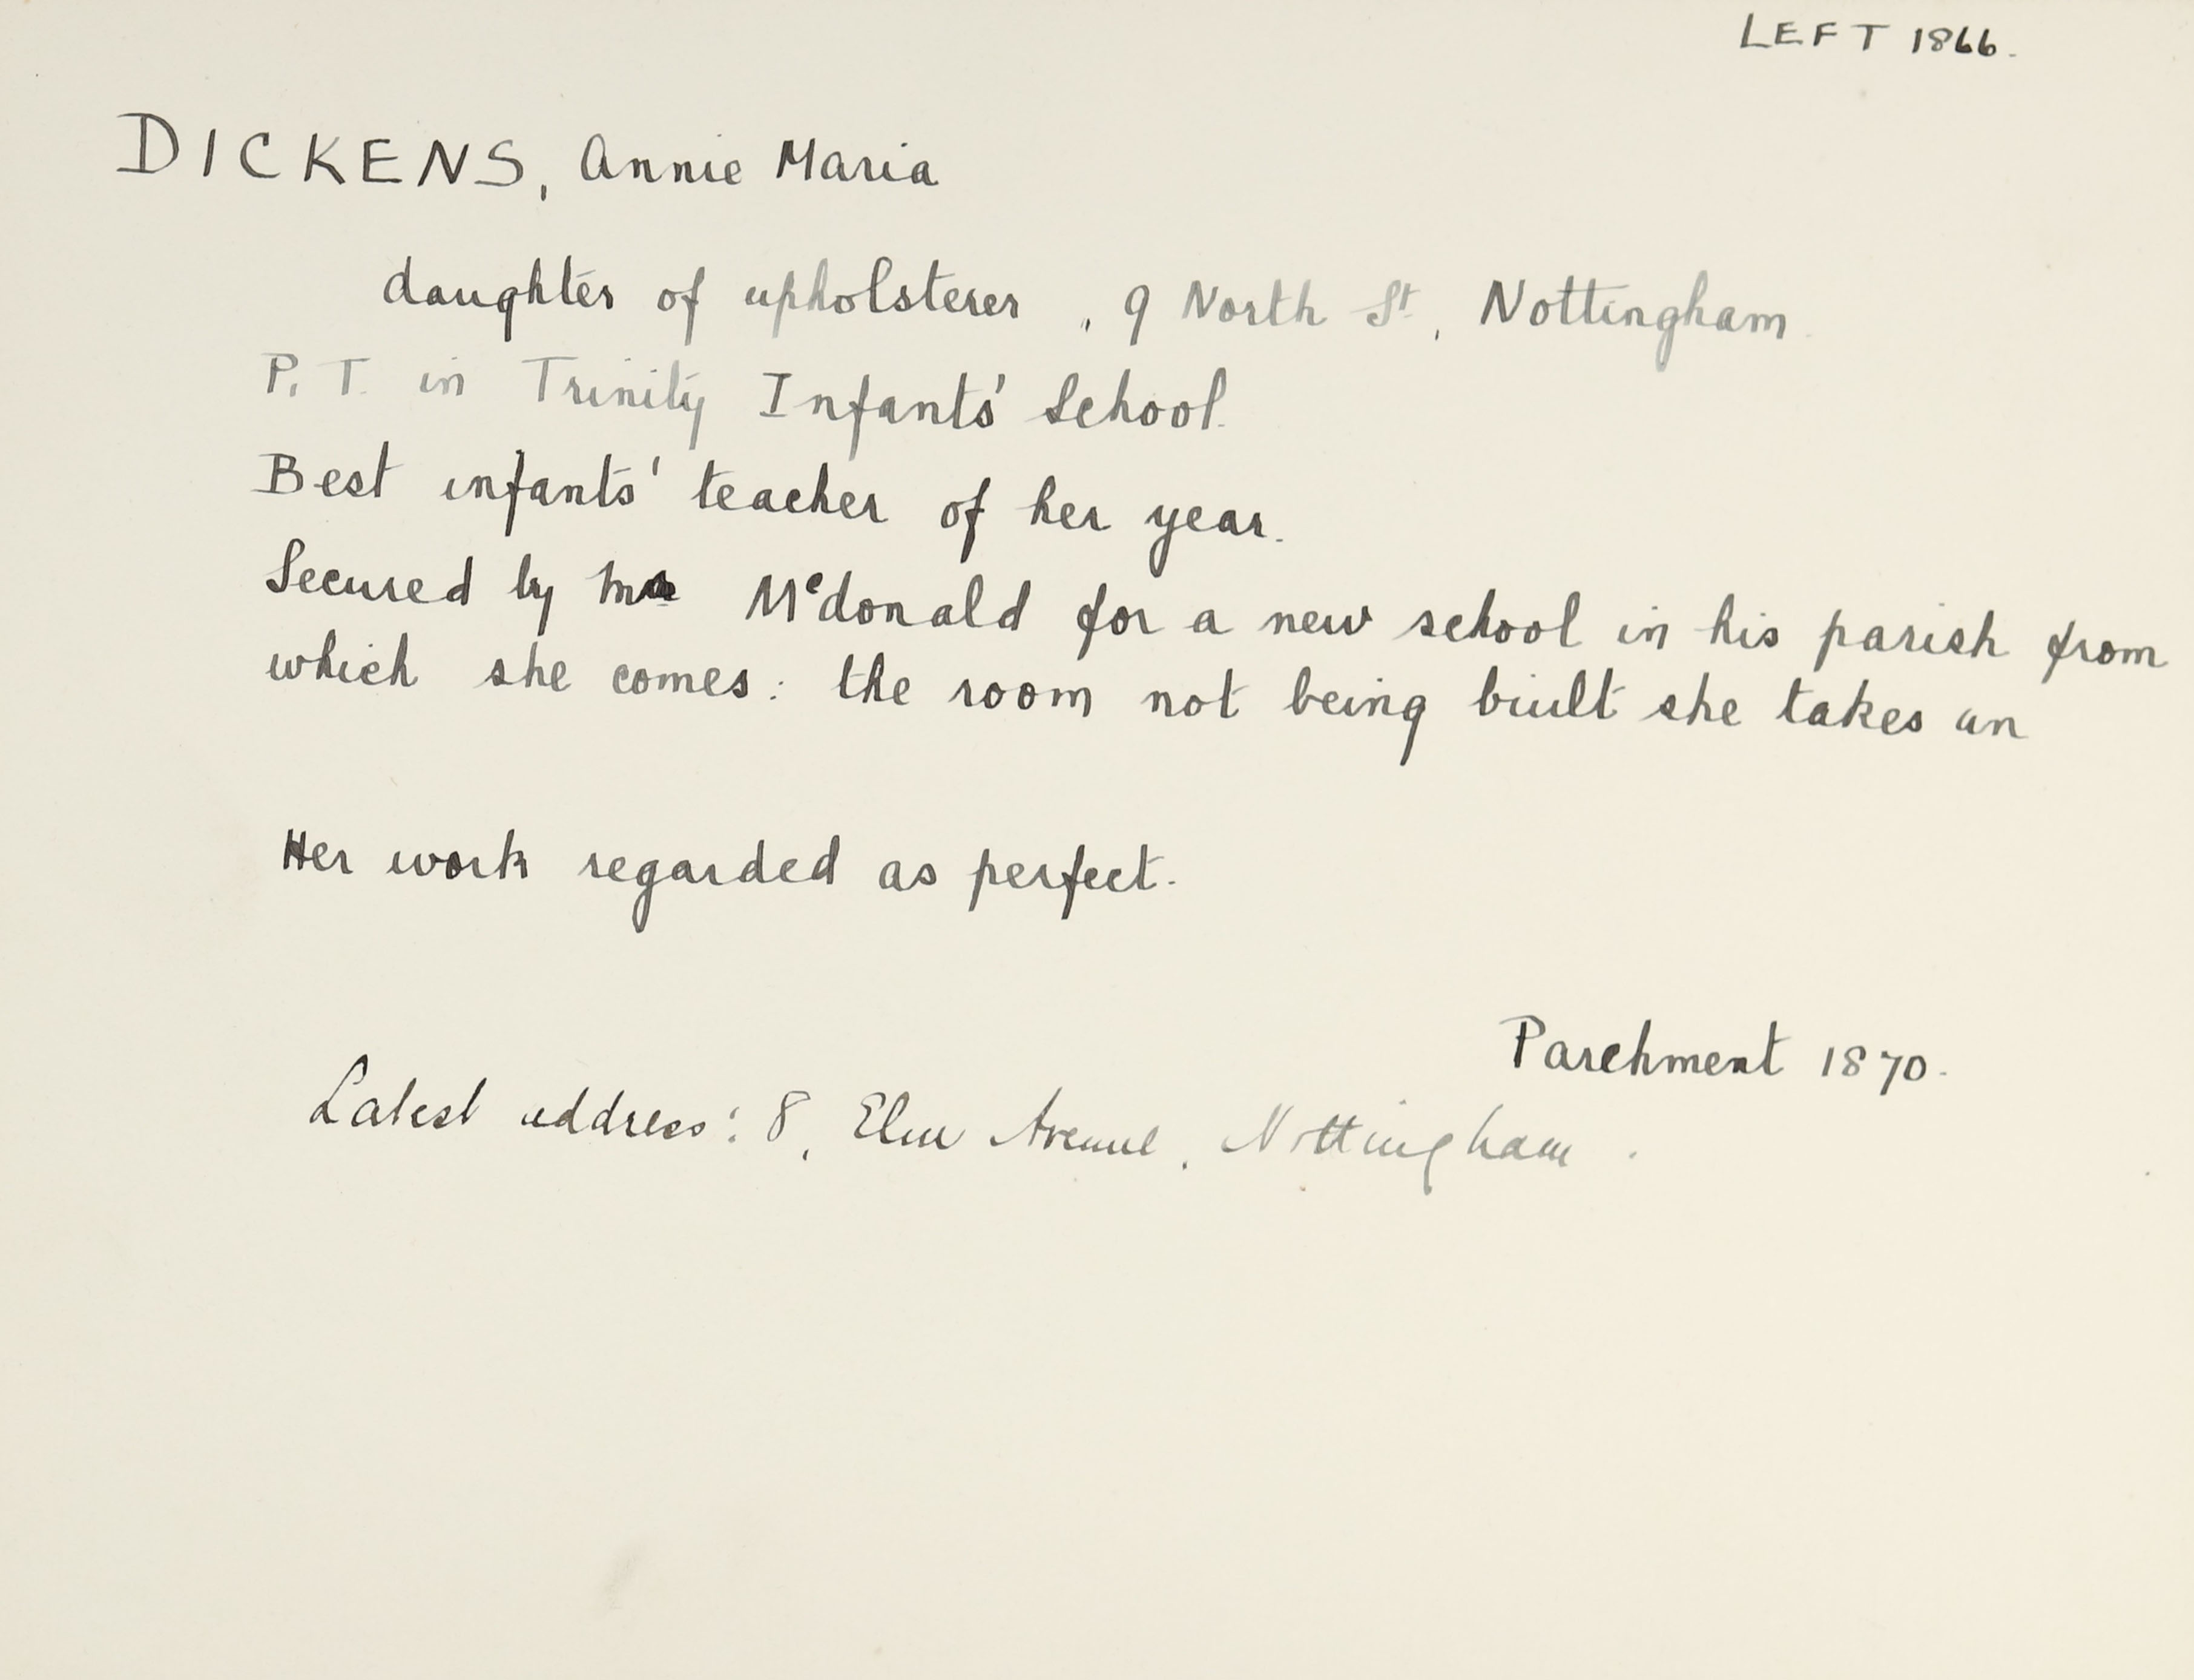 LEFT 1866.
DICKENS, Annie Maria
daughter of upholsterer, 9 North St, Nottingham.
P. T. in Trinity Infants' School.
Best infants' teacher of her year.
Secured by Mr McDonald for a new school in his parish from
which she comes: the room not being built she takes an
Her work regarded as perfect.
Parchment 1870.
Latest address: 8, Elm Avenue, Nottingham.